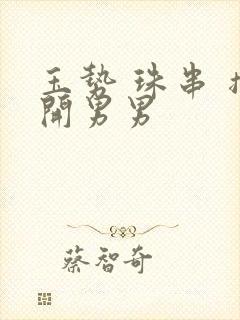 玉势珠串
開男男
蔡智奇